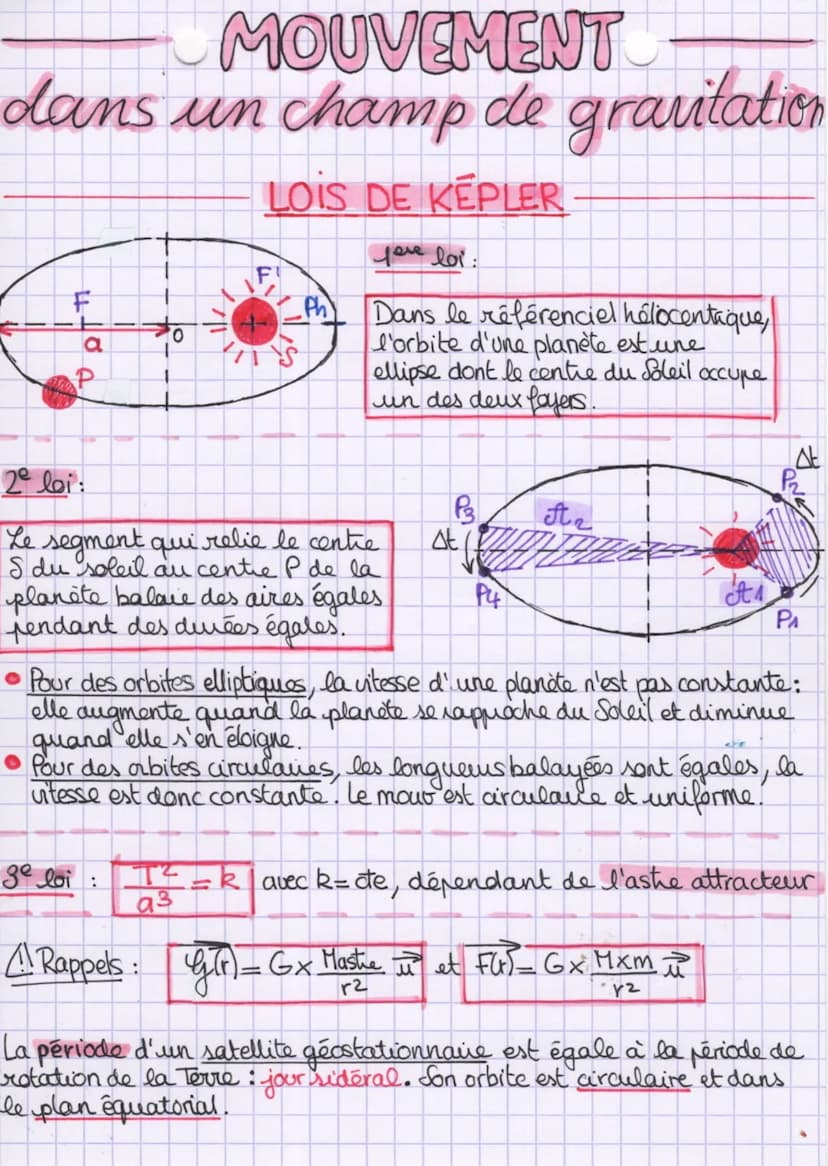 MOUVEMENT
dans un champ de gravitation
LOIS DE KÉPLER
1ère loi :
F
F'
Ph
a
O
S
P
Dans le référenciel héliocentrique,
l'orbite d'une planète est une
ellipse dont le centre du Soleil occupe
un des deux foyers.
2e loi :
Le segment qui relie le centre
S du soleil au centre P de la
planète balaie des aires égales
pendant des durées égales.
Δt
P2
P3
A2
Δt
P4
A1
P1
Pour des orbites elliptiques, la vitesse d'une planète n'est pas constante :
elle augmente quand la planète se rapproche du Soleil et diminue
quand elle s'en éloigne.
Pour des orbites circulaires, les longueurs balayées sont égales, la
vitesse est donc constante. Le mouv est circulaire et uniforme.
3e loi : T²/a³ = k avec k = cte, dépendant de l'astre attracteur
⚠ Rappels : G(r) = G x Mastre/r² u et F(r) = G x Mxm/r² u
La période d'un satellite géostationnaire est égale à la période de
rotation de la Terre : jour sidéral. Son orbite est circulaire et dans
le plan équatorial.